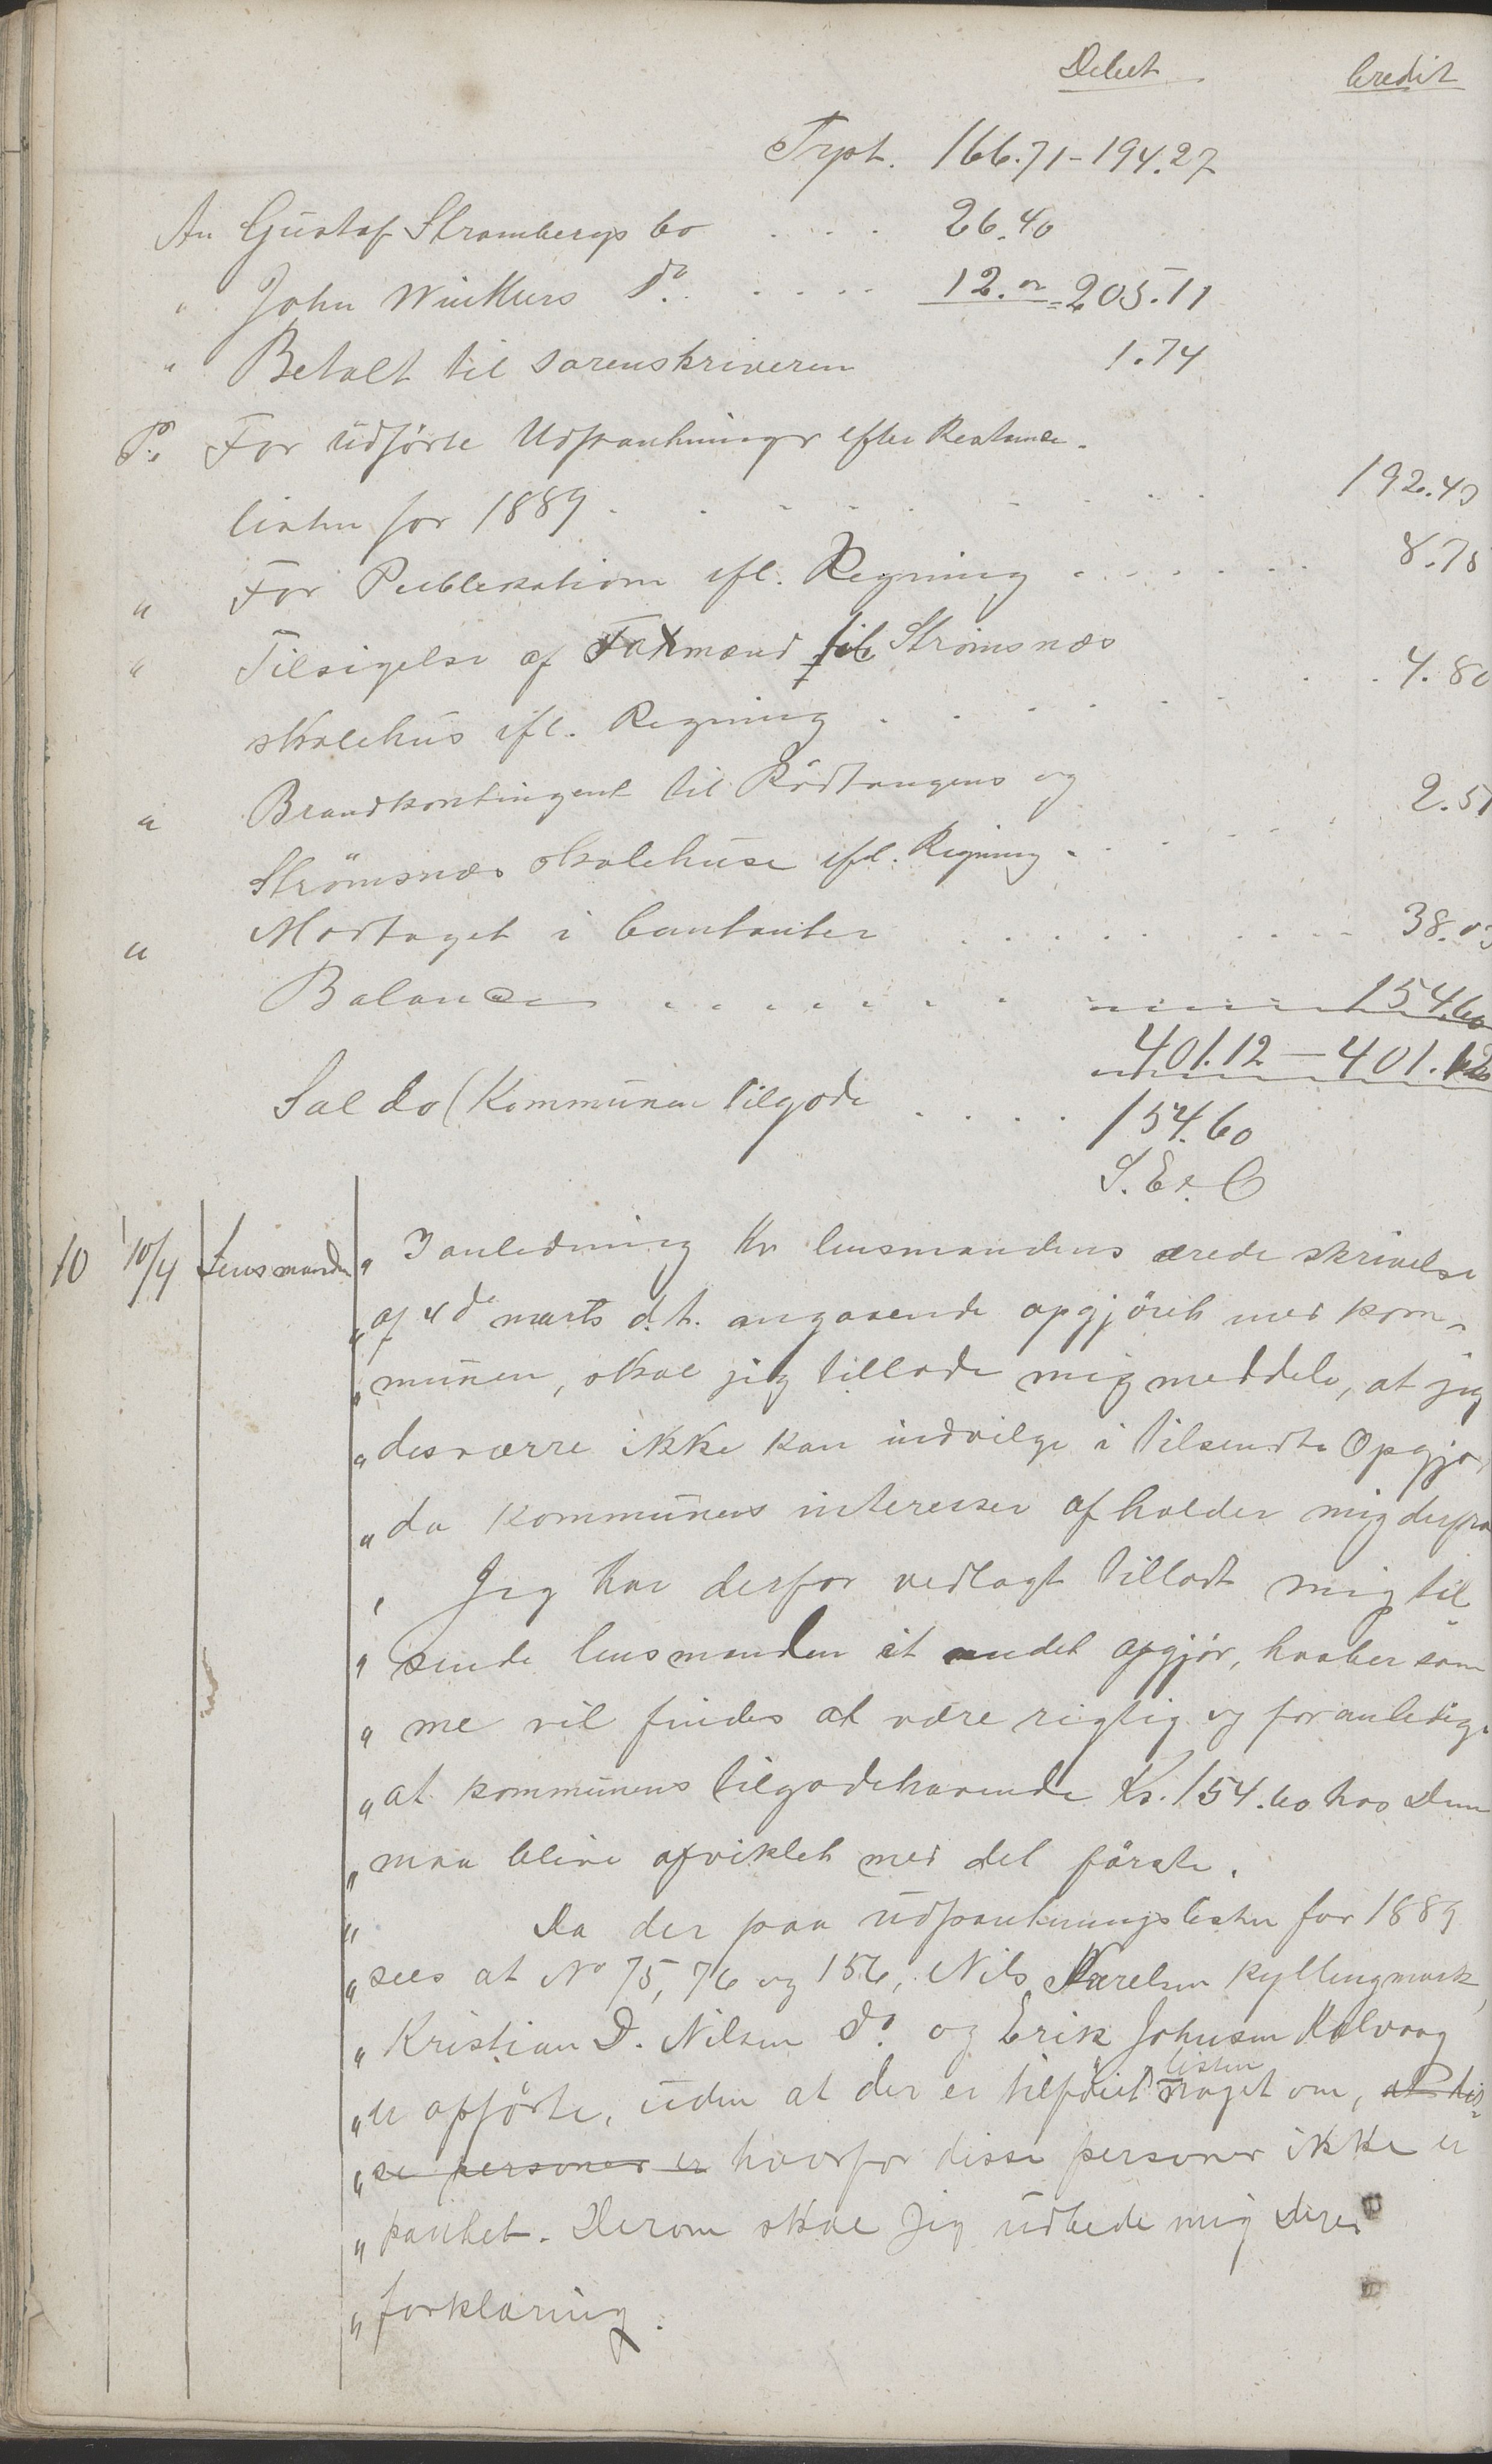 Debet Credit
Trpt. 166.71 - 194.27
An Gustaf Strombergs bo .... 26.40
" John Wiikkers do. ..... 12.00 = 205.11
" Betalt til sorenskriveren 1.74
Pr. For udförte Udpantninger efter Restance-
listen for 1889 ....... 192.43
" For Publikation ifl. Regning ....... 8.75
" Tilsigelse af Taxmænd til Strömsnæs
skolehus ifl. Regning ....... 4.80
" Brandkontingent til Rödtangens og
Strömsnæs skolehuse ifl. Regning ..... 2.51
" Modtaget i Contanter ......... 38.03
Balance ........... 154.60
401.12 - 401.12
Saldo (Kommunen tilgode .... 154.60
S. E. & O
10 10/4 Lensmanden " I anledning Hr lensmandens ærede skrivelse
" af 4de marts d. A. angaaende opgjöret med kom-
" munen, skal jeg tillade mig meddele, at jeg
" desværre ikke kan indvilge i tilsendte Opgjör
" da kommunens interesser afholder mig derfra
" Jeg har derfor vedlagt tilladt mig til
" sende lensmanden et andet opgjör, haaber sam
" me vil findes at være rigtig og foranledige
" at kommunens tilgodehavende Kr. 154.60 hos Dem
" maa blive afviklet med det förste.
" Da der paa udpantningslisten for 1889
" sees at No 75, 76 og 156, Nils Karelsen Kyllingmark,
" Kristian D. Nilsen do. og Erik Johnsen Kalvaag
" er opförte, uden at der er tilföiet listen noget om, at dis-
" se personer er hvorfor disse personer ikke er
" pantet. Derom skal jeg udbede mig Deres
" forklaring.